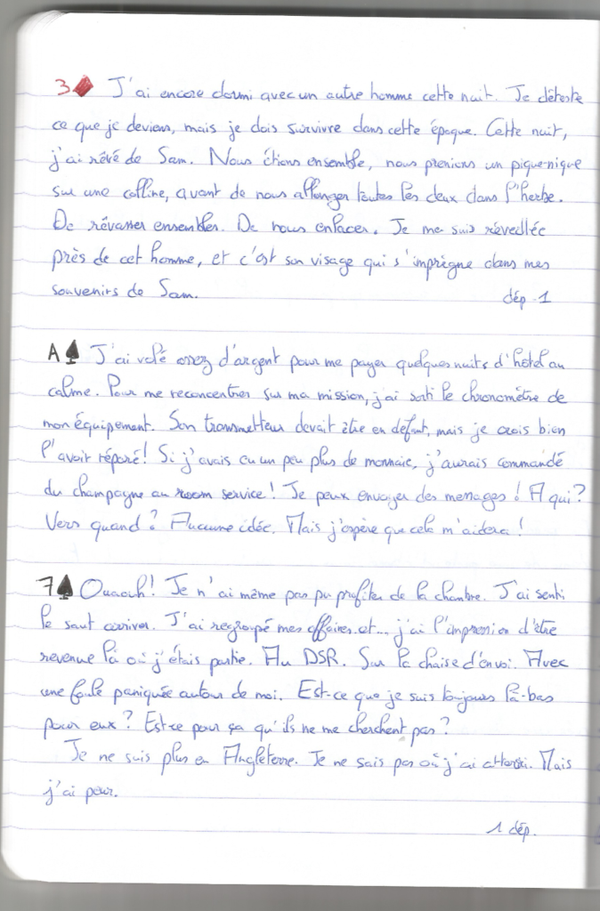 3♦ J'ai encore dormi avec un autre homme cette nuit. Je déteste
ce que je deviens, mais je dois survivre dans cette époque. Cette nuit,
j'ai rêvé de Sam. Nous étions ensemble, nous prenions un pique-nique
sur une colline, avant de nous allonger toutes les deux dans l'herbe.
De rêvasser ensembles. De nous enlacer. Je me suis réveillée
près de cet homme, et c'est son visage qui s'imprègne dans mes
souvenirs de Sam.
dép. 1
A♠ J'ai volé assez d'argent pour me payer quelques nuits d'hôtel au
calme. Pour me reconcentrer sur ma mission, j'ai sorti le chronomètre de
mon équipement. Son transmetteur devait être en défaut, mais je crois bien
l'avoir réparé! Si j'avais eu un peu plus de monnaie, j'aurais commandé
du champagne au room service! Je peux envoyer des messages! A qui?
Vers quand? Aucune idée. Mais j'espère que cela m'aidera!
7♠ Ouaouh! Je n'ai même pas pu profiter de la chambre. J'ai senti
le saut arriver. J'ai regroupé mes affaires et... j'ai l'impression d'être
revenue là où j'étais partie. Au DSR. Sur la chaise d'envoi. Avec
une foule paniquée autour de moi. Est-ce que je suis toujours là-bas
pour eux? Est-ce pour ça qu'ils ne me cherchent pas?
Je ne suis plus en Angleterre. Je ne sais pas où j'ai atterri. Mais
j'ai peur.
1 dép.